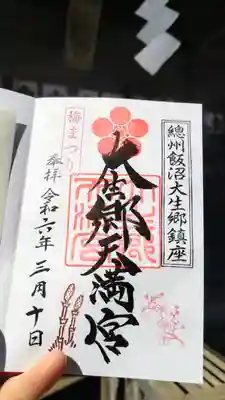 總州飯沼大生郷鎮座
大生郷天満宮
梅まつり
奉拝 令和六年 三月 十日